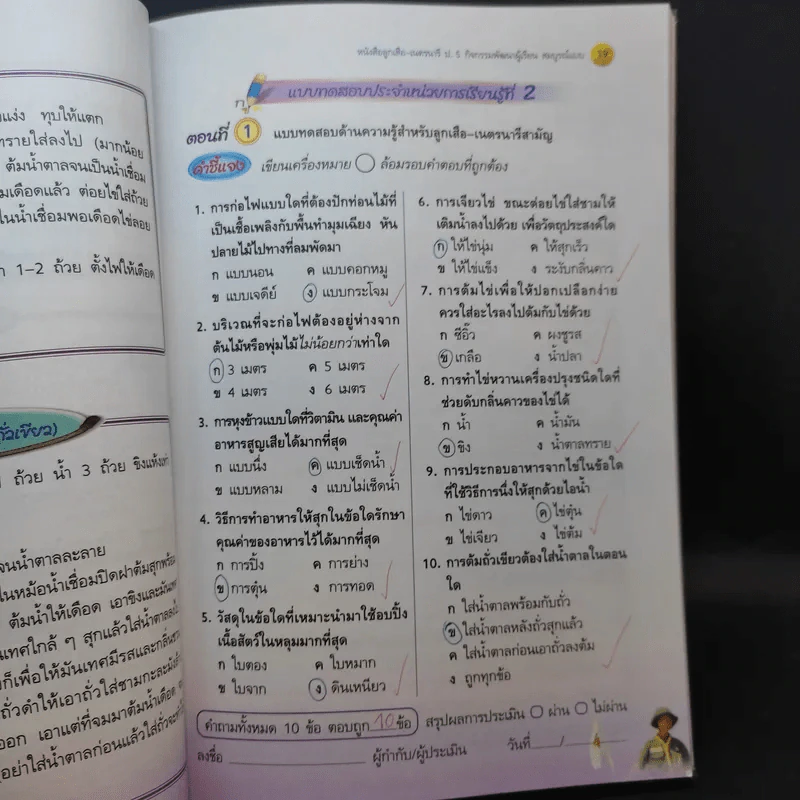 แบ่ง ทุบให้แตก
ทรายใส่ลงไป (มากน้อย
ต้มน้ำตาลจนเป็นน้ำเชื่อม
มเดือดแล้ว ต่อยไข่ใส่ถ้วย
ในน้ำเชื่อมพอเดือดไข่ลอย
1-2 ถ้วย ตั้งไฟให้เดือด
ถั่วเขียว)
ถ้วย น้ำ 3 ถ้วย ขิงแห้งเท่า
จนน้ำตาลละลาย
ในหม้อน้ำเชื่อมปิดฝาต้มสุกพร้อม
ต้มน้ำให้เดือด เอาขิงและมันเทศ
นเทศใกล้ ๆ สุกแล้วใส่น้ำตาลลง
งก็เพื่อให้มันเทศมีรสและกลิ่น
ถั่วดำให้เอาถั่วใส่ชามกะละมัง
ออก เอาแต่ที่จมมาต้มน้ำเดือด
อย่าใส่น้ำตาลก่อนแล้วใส่ถั่ว
หนังสือลูกเสือ-เนตรนารี ป. 5 กิจกรรมพัฒนาผู้เรียน สมบูรณ์แบบ 19
แบบทดสอบประจำหน่วยการเรียนรู้ที่ 2
ตอนที่ 1 แบบทดสอบด้านความรู้สำหรับลูกเสือ-เนตรนารีสามัญ
คำชี้แจง เขียนเครื่องหมาย ◯ ล้อมรอบคำตอบที่ถูกต้อง
1. การก่อไฟแบบใดที่ต้องปักท่อนไม้ที่
เป็นเชื้อเพลิงกับพื้นทำมุมเฉียง หัน
ปลายไม้ไปทางที่ลมพัดมา
ก แบบนอน ค แบบคอกหมู
ข แบบเจดีย์ ง แบบกระโจม
2. บริเวณที่จะก่อไฟต้องอยู่ห่างจาก
ต้นไม้หรือพุ่มไม้ไม่น้อยกว่าเท่าใด
ก 3 เมตร ค 5 เมตร
ข 4 เมตร ง 6 เมตร
3. การหุงข้าวแบบใดที่วิตามิน และคุณค่า
อาหารสูญเสียได้มากที่สุด
ก แบบนึ่ง ค แบบเช็ดน้ำ
ข แบบหลาม ง แบบไม่เช็ดน้ำ
4. วิธีการทำอาหารให้สุกในข้อใดรักษา
คุณค่าของอาหารไว้ได้มากที่สุด
ก การปิ้ง ค การย่าง
ข การตุ๋น ง การทอด
5. วัสดุในข้อใดที่เหมาะนำมาใช้อบปิ้ง
เนื้อสัตว์ในหลุมมากที่สุด
ก ใบตอง ค ใบหมาก
ข ใบจาก ง ดินเหนียว
6. การเจียวไข่ ขณะต่อยไข่ใส่ชามให้
เติมน้ำลงไปด้วย เพื่อวัตถุประสงค์ใด
ก ให้ไข่นุ่ม ค ให้สุกเร็ว
ข ให้ไข่แข็ง ง ระงับกลิ่นคาว
7. การต้มไข่เพื่อให้ปอกเปลือกง่าย
ควรใส่อะไรลงไปต้มกับไข่ด้วย
ก ซีอิ๊ว ค ผงชูรส
ข เกลือ ง น้ำปลา
8. การทำไข่หวานเครื่องปรุงชนิดใดที่
ช่วยดับกลิ่นคาวของไข่ได้
ก น้ำ ค น้ำมัน
ข ขิง ง น้ำตาลทราย
9. การประกอบอาหารจากไข่ในข้อใด
ที่ใช้วิธีการนึ่งให้สุกด้วยไอน้ำ
ก ไข่ดาว ค ไข่ตุ๋น
ข ไข่เจียว ง ไข่ต้ม
10. การต้มถั่วเขียวต้องใส่น้ำตาลในตอน
ใด
ก ใส่น้ำตาลพร้อมกับถั่ว
ข ใส่น้ำตาลหลังถั่วสุกแล้ว
ค ใส่น้ำตาลก่อนเอาถั่วลงต้ม
ง ถูกทุกข้อ
คำถามทั้งหมด 10 ข้อ ตอบถูก 10 ข้อ สรุปผลการประเมิน ◯ ผ่าน ◯ ไม่ผ่าน
ลงชื่อ ผู้กำกับ/ผู้ประเมิน วันที่ / /